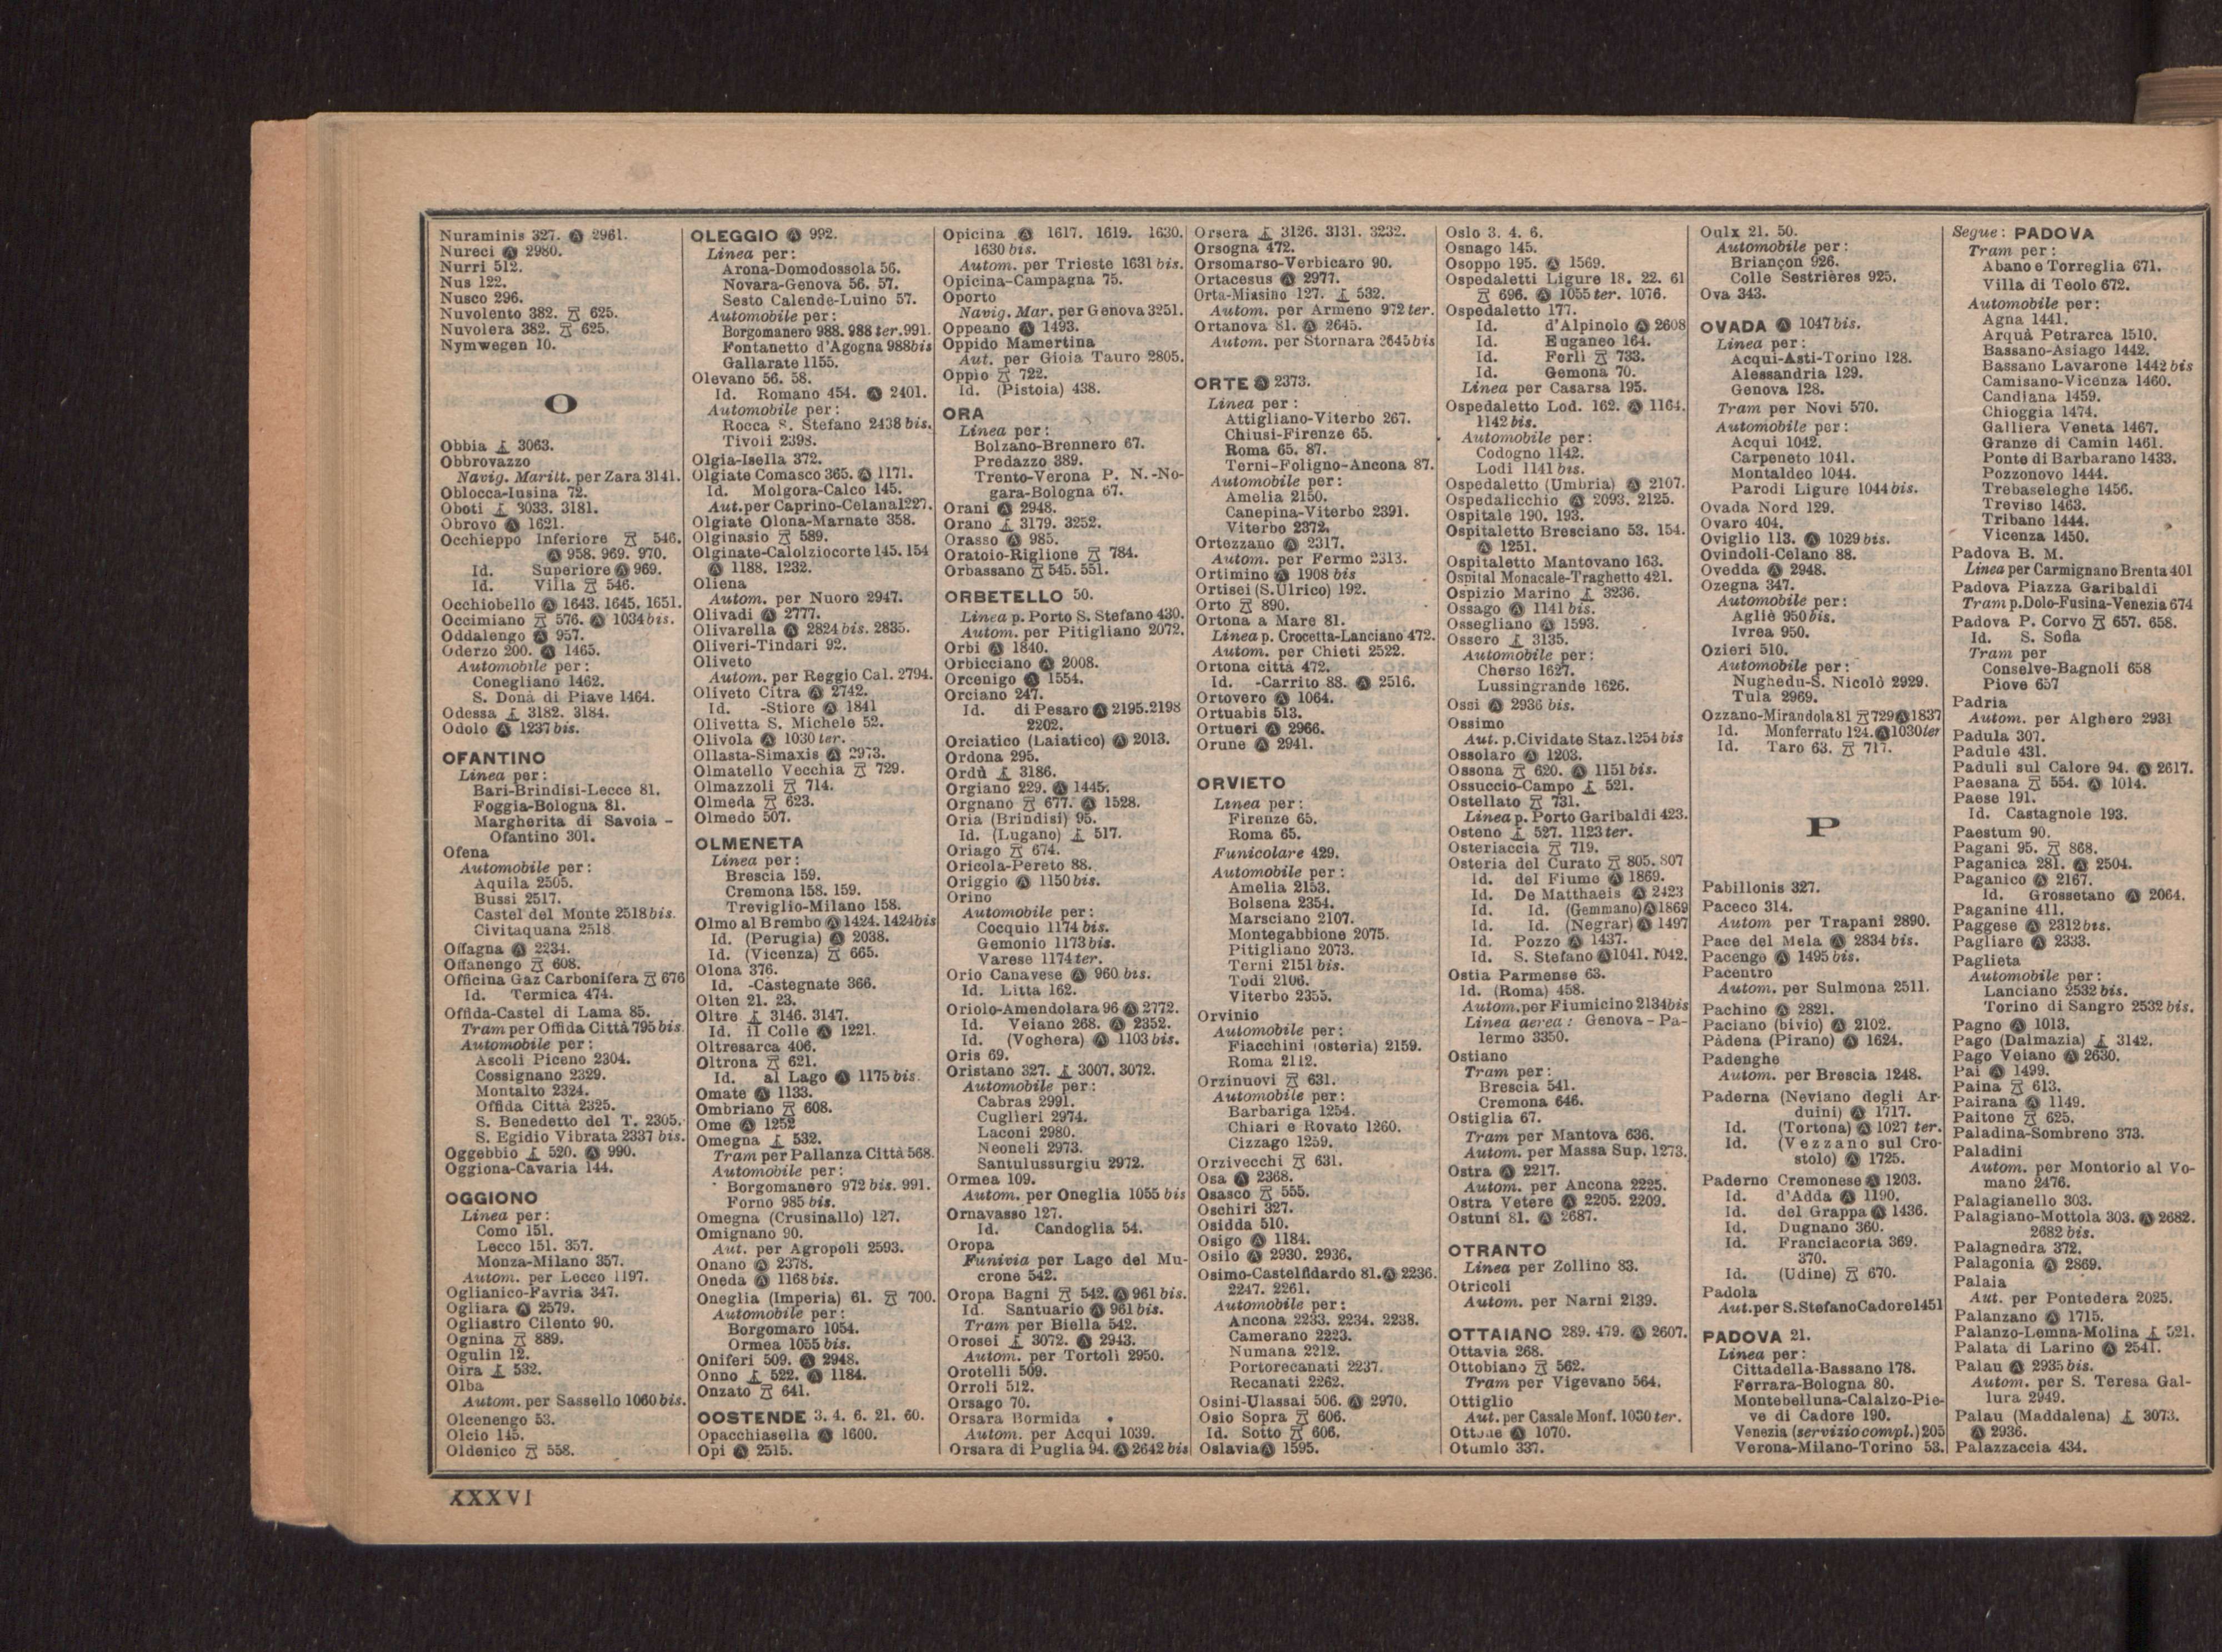 Nuraminis 327. Ⓐ 2961.
Nureci Ⓐ 2980.
Nurri 512.
Nus 122.
Nusco 296.
Nuvolento 382. 625.
Nuvolera 382. 625.
Nymwegen 10.
O
Obbia 3063.
Obbrovazzo
Navig. Maritt. per Zara 3141.
Oblocca-Iusina 72.
Oboti 3033. 3181.
Obrovo Ⓐ 1621.
Occhieppo Inferiore 546.
Ⓐ 958. 969. 970.
Id. Superiore Ⓐ 969.
Id. Villa 546.
Occhiobello Ⓐ 1643. 1645. 1651.
Occimiano 576. Ⓐ 1034 bis.
Oddalengo Ⓐ 957.
Oderzo 200. Ⓐ 1465.
Automobile per:
Conegliano 1462.
S. Donà di Piave 1464.
Odessa 3182. 3184.
Odolo Ⓐ 1237 bis.
OFANTINO
Linea per:
Bari-Brindisi-Lecce 81.
Foggia-Bologna 81.
Margherita di Savoia -
Ofantino 301.
Ofena
Automobile per:
Aquila 2505.
Bussi 2517.
Castel del Monte 2518 bis.
Civitaquana 2518.
Offagna Ⓐ 2234.
Offanengo 608.
Officina Gaz Carbonifera 676
Id. Termica 474.
Offida-Castel di Lama 85.
Tram per Offida Città 795 bis.
Automobile per:
Ascoli Piceno 2304.
Cossignano 2329.
Montalto 2324.
Offida Città 2325.
S. Benedetto del T. 2305.
S. Egidio Vibrata 2337 bis.
Oggebbio 520. Ⓐ 990.
Oggiona-Cavaria 144.
OGGIONO
Linea per:
Como 151.
Lecco 151. 357.
Monza-Milano 357.
Autom. per Lecco 1197.
Oglianico-Favria 347.
Ogliara Ⓐ 2579.
Ogliastro Cilento 90.
Ognina 889.
Ogulin 12.
Oira 532.
Olba
Autom. per Sassello 1060 bis.
Olcenengo 53.
Olcio 145.
Oldenico 558.
OLEGGIO Ⓐ 992.
Linea per:
Arona-Domodossola 56.
Novara-Genova 56. 57.
Sesto Calende-Luino 57.
Automobile per:
Borgomanero 988. 988 ter. 991.
Fontanetto d'Agogna 988bis
Gallarate 1155.
Olevano 56. 58.
Id. Romano 454. Ⓐ 2401.
Automobile per:
Rocca S. Stefano 2438 bis.
Tivoli 2398.
Olgia-Isella 372.
Olgiate Comasco 365. Ⓐ 1171.
Id. Molgora-Calco 145.
Aut. per Caprino-Celana 1227.
Olgiate Olona-Marnate 358.
Olginasio 589.
Olginate-Calolziocorte 145. 154
Ⓐ 1188. 1232.
Oliena
Autom. per Nuoro 2947.
Olivadi Ⓐ 2777.
Olivarella Ⓐ 2824 bis. 2835.
Oliveri-Tindari 92.
Oliveto
Autom. per Reggio Cal. 2794.
Oliveto Citra Ⓐ 2742.
Id. -Stiore Ⓐ 1841
Olivetta S. Michele 52.
Olivola Ⓐ 1030 ter.
Ollasta-Simaxis Ⓐ 2973.
Olmatello Vecchia 729.
Olmazzoli 714.
Olmeda 623.
Olmedo 507.
OLMENETA
Linea per:
Brescia 159.
Cremona 158. 159.
Treviglio-Milano 158.
Olmo al Brembo Ⓐ 1424. 1424bis
Id. (Perugia) Ⓐ 2038.
Id. (Vicenza) 665.
Olona 376.
Id. -Castegnate 366.
Olten 21. 23.
Oltre 3146. 3147.
Id. il Colle Ⓐ 1221.
Oltresarca 406.
Oltrona 621.
Id. al Lago Ⓐ 1175 bis.
Omate Ⓐ 1133.
Ombriano 608.
Ome Ⓐ 1252
Omegna 532.
Tram per Pallanza Città 568.
Automobile per:
Borgomanero 972 bis. 991.
Forno 985 bis.
Omegna (Crusinallo) 127.
Omignano 90.
Aut. per Agropoli 2593.
Onano Ⓐ 2378.
Oneda Ⓐ 1168 bis.
Oneglia (Imperia) 61. 700.
Automobile per:
Borgomaro 1054.
Ormea 1055 bis.
Oniferi 509. Ⓐ 2948.
Onno 522. Ⓐ 1184.
Onzato 641.
OOSTENDE 3. 4. 6. 21. 60.
Opacchiasella Ⓐ 1600.
Opi Ⓐ 2515.
Opicina Ⓐ 1617. 1619. 1630.
1630 bis.
Autom. per Trieste 1631 bis.
Opicina-Campagna 75.
Oporto
Navig. Mar. per Genova 3251.
Oppeano Ⓐ 1493.
Oppido Mamertina
Aut. per Gioia Tauro 2805.
Oppio 722.
Id. (Pistoia) 438.
ORA
Linea per:
Bolzano-Brennero 67.
Predazzo 389.
Trento-Verona P. N.-No-
gara-Bologna 67.
Orani Ⓐ 2948.
Orano 3179. 3252.
Orasso Ⓐ 985.
Oratoio-Riglione 784.
Orbassano 545. 551.
ORBETELLO 50.
Linea p. Porto S. Stefano 430.
Autom. per Pitigliano 2072.
Orbi Ⓐ 1840.
Orbicciano Ⓐ 2008.
Orcenigo Ⓐ 1554.
Orciano 247.
Id. di Pesaro Ⓐ 2195. 2198
2202.
Orciatico (Laiatico) Ⓐ 2013.
Ordona 295.
Ordù 3186.
Orgiano 229. Ⓐ 1445.
Orgnano 677. Ⓐ 1528.
Oria (Brindisi) 95.
Id. (Lugano) 517.
Oriago 674.
Oricola-Pereto 88.
Origgio Ⓐ 1150 bis.
Orino
Automobile per:
Cocquio 1174 bis.
Gemonio 1173 bis.
Varese 1174 ter.
Orio Canavese Ⓐ 960 bis.
Id. Litta 162.
Oriolo-Amendolara 96 Ⓐ 2772.
Id. Veiano 268. Ⓐ 2352.
Id. (Voghera) Ⓐ 1103 bis.
Oris 69.
Oristano 327. 3007. 3072.
Automobile per:
Cabras 2991.
Cuglieri 2974.
Laconi 2980.
Neoneli 2973.
Santulussurgiu 2972.
Ormea 109.
Autom. per Oneglia 1055 bis
Ornavasso 127.
Id. Candoglia 54.
Oropa
Funivia per Lago del Mu-
crone 542.
Oropa Bagni 542. Ⓐ 961 bis.
Id. Santuario Ⓐ 961 bis.
Tram per Biella 542.
Orosei 3072. Ⓐ 2943.
Autom. per Tortolì 2950.
Orotelli 509.
Orroli 512.
Orsago 70.
Orsara Bormida
Autom. per Acqui 1039.
Orsara di Puglia 94. Ⓐ 2642 bis
Orsera 3126. 3131. 3232.
Orsogna 472.
Orsomarso-Verbicaro 90.
Ortacesus Ⓐ 2977.
Orta-Miasino 127. 532.
Autom. per Armeno 972 ter.
Ortanova 81. Ⓐ 2645.
Autom. per Stornara 2645 bis
ORTE Ⓐ 2373.
Linea per:
Attigliano-Viterbo 267.
Chiusi-Firenze 65.
Roma 65. 87.
Terni-Foligno-Ancona 87.
Automobile per:
Amelia 2150.
Canepina-Viterbo 2391.
Viterbo 2372.
Ortezzano Ⓐ 2317.
Autom. per Fermo 2313.
Ortimino Ⓐ 1908 bis
Ortisei (S. Ulrico) 192.
Orto 890.
Ortona a Mare 81.
Linea p. Crocetta-Lanciano 472.
Autom. per Chieti 2522.
Ortona città 472.
Id. -Carrito 88. Ⓐ 2516.
Ortovero Ⓐ 1064.
Ortuabis 513.
Ortueri Ⓐ 2966.
Orune Ⓐ 2941.
ORVIETO
Linea per:
Firenze 65.
Roma 65.
Funicolare 429.
Automobile per:
Amelia 2153.
Bolsena 2354.
Marsciano 2107.
Montegabbione 2075.
Pitigliano 2073.
Terni 2151 bis.
Todi 2106.
Viterbo 2355.
Orvinio
Automobile per:
Fiacchini (osteria) 2159.
Roma 2112.
Orzinuovi 631.
Automobile per:
Barbariga 1254.
Chiari e Rovato 1260.
Cizzago 1259.
Orzivecchi 631.
Osa Ⓐ 2368.
Osasco 555.
Oschiri 327.
Osidda 510.
Osigo Ⓐ 1184.
Osilo Ⓐ 2930. 2936.
Osimo-Castelfidardo 81. Ⓐ 2236.
2247. 2261.
Automobile per:
Ancona 2233. 2234. 2238.
Camerano 2223.
Numana 2212.
Portorecanati 2237.
Recanati 2262.
Osini-Ulassai 506. Ⓐ 2970.
Osio Sopra 606.
Id. Sotto 606.
Oslavia Ⓐ 1595.
Oslo 3. 4. 6.
Osnago 145.
Osoppo 195. Ⓐ 1569.
Ospedaletti Ligure 18. 22. 61
696. Ⓐ 1055 ter. 1076.
Ospedaletto 177.
Id. d'Alpinolo Ⓐ 2608
Id. Euganeo 164.
Id. Forlì 733.
Id. Gemona 70.
Linea per Casarsa 195.
Ospedaletto Lod. 162. Ⓐ 1164.
1142 bis.
Automobile per:
Codogno 1142.
Lodi 1141 bis.
Ospedaletto (Umbria) Ⓐ 2107.
Ospedalicchio Ⓐ 2093. 2125.
Ospitale 190. 193.
Ospitaletto Bresciano 53. 154.
Ⓐ 1251.
Ospitaletto Mantovano 163.
Ospital Monacale-Traghetto 421.
Ospizio Marino 3236.
Ossago Ⓐ 1141 bis.
Ossegliano Ⓐ 1593.
Ossero 3135.
Automobile per:
Cherso 1627.
Lussingrande 1626.
Ossi Ⓐ 2936 bis.
Ossimo
Aut. p. Cividate Staz. 1254 bis
Ossolaro Ⓐ 1203.
Ossona 620. Ⓐ 1151 bis.
Ossuccio-Campo 521.
Ostellato 731.
Linea p. Porto Garibaldi 423.
Osteno 527. 1123 ter.
Osteriaccia 719.
Osteria del Curato 805. 807
Id. del Fiume Ⓐ 1869.
Id. De Matthaeis Ⓐ 2423
Id. Id. (Gemmano) Ⓐ 1869
Id. Id. (Negrar) Ⓐ 1497
Id. Pozzo Ⓐ 1437.
Id. S. Stefano Ⓐ 1041. 1042.
Ostia Parmense 63.
Id. (Roma) 458.
Autom. per Fiumicino 2134bis
Linea aerea: Genova - Pa-
lermo 3350.
Ostiano
Tram per:
Brescia 541.
Cremona 646.
Ostiglia 67.
Tram per Mantova 636.
Autom. per Massa Sup. 1273.
Ostra Ⓐ 2217.
Autom. per Ancona 2225.
Ostra Vetere Ⓐ 2205. 2209.
Ostuni 81. Ⓐ 2687.
OTRANTO
Linea per Zollino 83.
Otricoli
Autom. per Narni 2139.
OTTAIANO 289. 479. Ⓐ 2607.
Ottavia 268.
Ottobiano 562.
Tram per Vigevano 564.
Ottiglio
Aut. per Casale Monf. 1030 ter.
Ottone Ⓐ 1070.
Otumlo 337.
Oulx 21. 50.
Automobile per:
Briançon 926.
Colle Sestrières 925.
Ova 343.
OVADA Ⓐ 1047 bis.
Linea per:
Acqui-Asti-Torino 128.
Alessandria 129.
Genova 128.
Tram per Novi 570.
Automobile per:
Acqui 1042.
Carpeneto 1041.
Montaldeo 1044.
Parodi Ligure 1044 bis.
Ovada Nord 129.
Ovaro 404.
Oviglio 113. Ⓐ 1029 bis.
Ovindoli-Celano 88.
Ovedda Ⓐ 2948.
Ozegna 347.
Automobile per:
Agliè 950 bis.
Ivrea 950.
Ozieri 510.
Automobile per:
Nughedu-S. Nicolò 2929.
Tula 2969.
Ozzano-Mirandola 81 729 Ⓐ 1837
Id. Monferrato 124. Ⓐ 1030ter
Id. Taro 63. 717.
P
Pabillonis 327.
Paceco 314.
Autom per Trapani 2890.
Pace del Mela Ⓐ 2834 bis.
Pacengo Ⓐ 1495 bis.
Pacentro
Autom. per Sulmona 2511.
Pachino Ⓐ 2821.
Paciano (bivio) Ⓐ 2102.
Pàdena (Pirano) Ⓐ 1624.
Padenghe
Autom. per Brescia 1248.
Paderna (Neviano degli Ar-
duini) Ⓐ 1717.
Id. (Tortona) Ⓐ 1027 ter.
Id. (Vezzano sul Cro-
stolo) Ⓐ 1725.
Paderno Cremonese Ⓐ 1203.
Id. d'Adda Ⓐ 1190.
Id. del Grappa Ⓐ 1436.
Id. Dugnano 360.
Id. Franciacorta 369.
370.
Id. (Udine) 670.
Padola
Aut. per S. Stefano Cadore 1451
PADOVA 21.
Linea per:
Cittadella-Bassano 178.
Ferrara-Bologna 80.
Montebelluna-Calalzo-Pie-
ve di Cadore 190.
Venezia (servizio compl.) 205
Verona-Milano-Torino 53.
Segue: PADOVA
Tram per:
Abano e Torreglia 671.
Villa di Teolo 672.
Automobile per:
Agna 1441.
Arquà Petrarca 1510.
Bassano-Asiago 1442.
Bassano Lavarone 1442 bis
Camisano-Vicenza 1460.
Candiana 1459.
Chioggia 1474.
Galliera Veneta 1467.
Granze di Camin 1461.
Ponte di Barbarano 1433.
Pozzonovo 1444.
Trebaseleghe 1456.
Treviso 1463.
Tribano 1444.
Vicenza 1450.
Padova B. M.
Linea per Carmignano Brenta 401
Padova Piazza Garibaldi
Tram p. Dolo-Fusina-Venezia 674
Padova P. Corvo 657. 658.
Id. S. Sofia
Tram per
Conselve-Bagnoli 658
Piove 657
Padria
Autom. per Alghero 2931
Padula 307.
Padule 431.
Paduli sul Calore 94. Ⓐ 2617.
Paesana 554. Ⓐ 1014.
Paese 191.
Id. Castagnole 193.
Paestum 90.
Pagani 95. 868.
Paganica 281. Ⓐ 2504.
Paganico Ⓐ 2167.
Id. Grossetano Ⓐ 2064.
Paganine 411.
Paggese Ⓐ 2312 bis.
Pagliare Ⓐ 2333.
Paglieta
Automobile per:
Lanciano 2532 bis.
Torino di Sangro 2532 bis.
Pagno Ⓐ 1013.
Pago (Dalmazia) 3142.
Pago Veiano Ⓐ 2630.
Pai Ⓐ 1499.
Paina 613.
Pairana Ⓐ 1149.
Paitone 625.
Paladina-Sombreno 373.
Paladini
Autom. per Montorio al Vo-
mano 2476.
Palagianello 303.
Palagiano-Mottola 303. Ⓐ 2682.
2682 bis.
Palagnedra 372.
Palagonia Ⓐ 2869.
Palaia
Aut. per Pontedera 2025.
Palanzano Ⓐ 1715.
Palanzo-Lemna-Molina 521.
Palata di Larino Ⓐ 2541.
Palau Ⓐ 2935 bis.
Autom. per S. Teresa Gal-
lura 2949.
Palau (Maddalena) 3073.
Ⓐ 2936.
Palazzaccia 434.
XXXVI